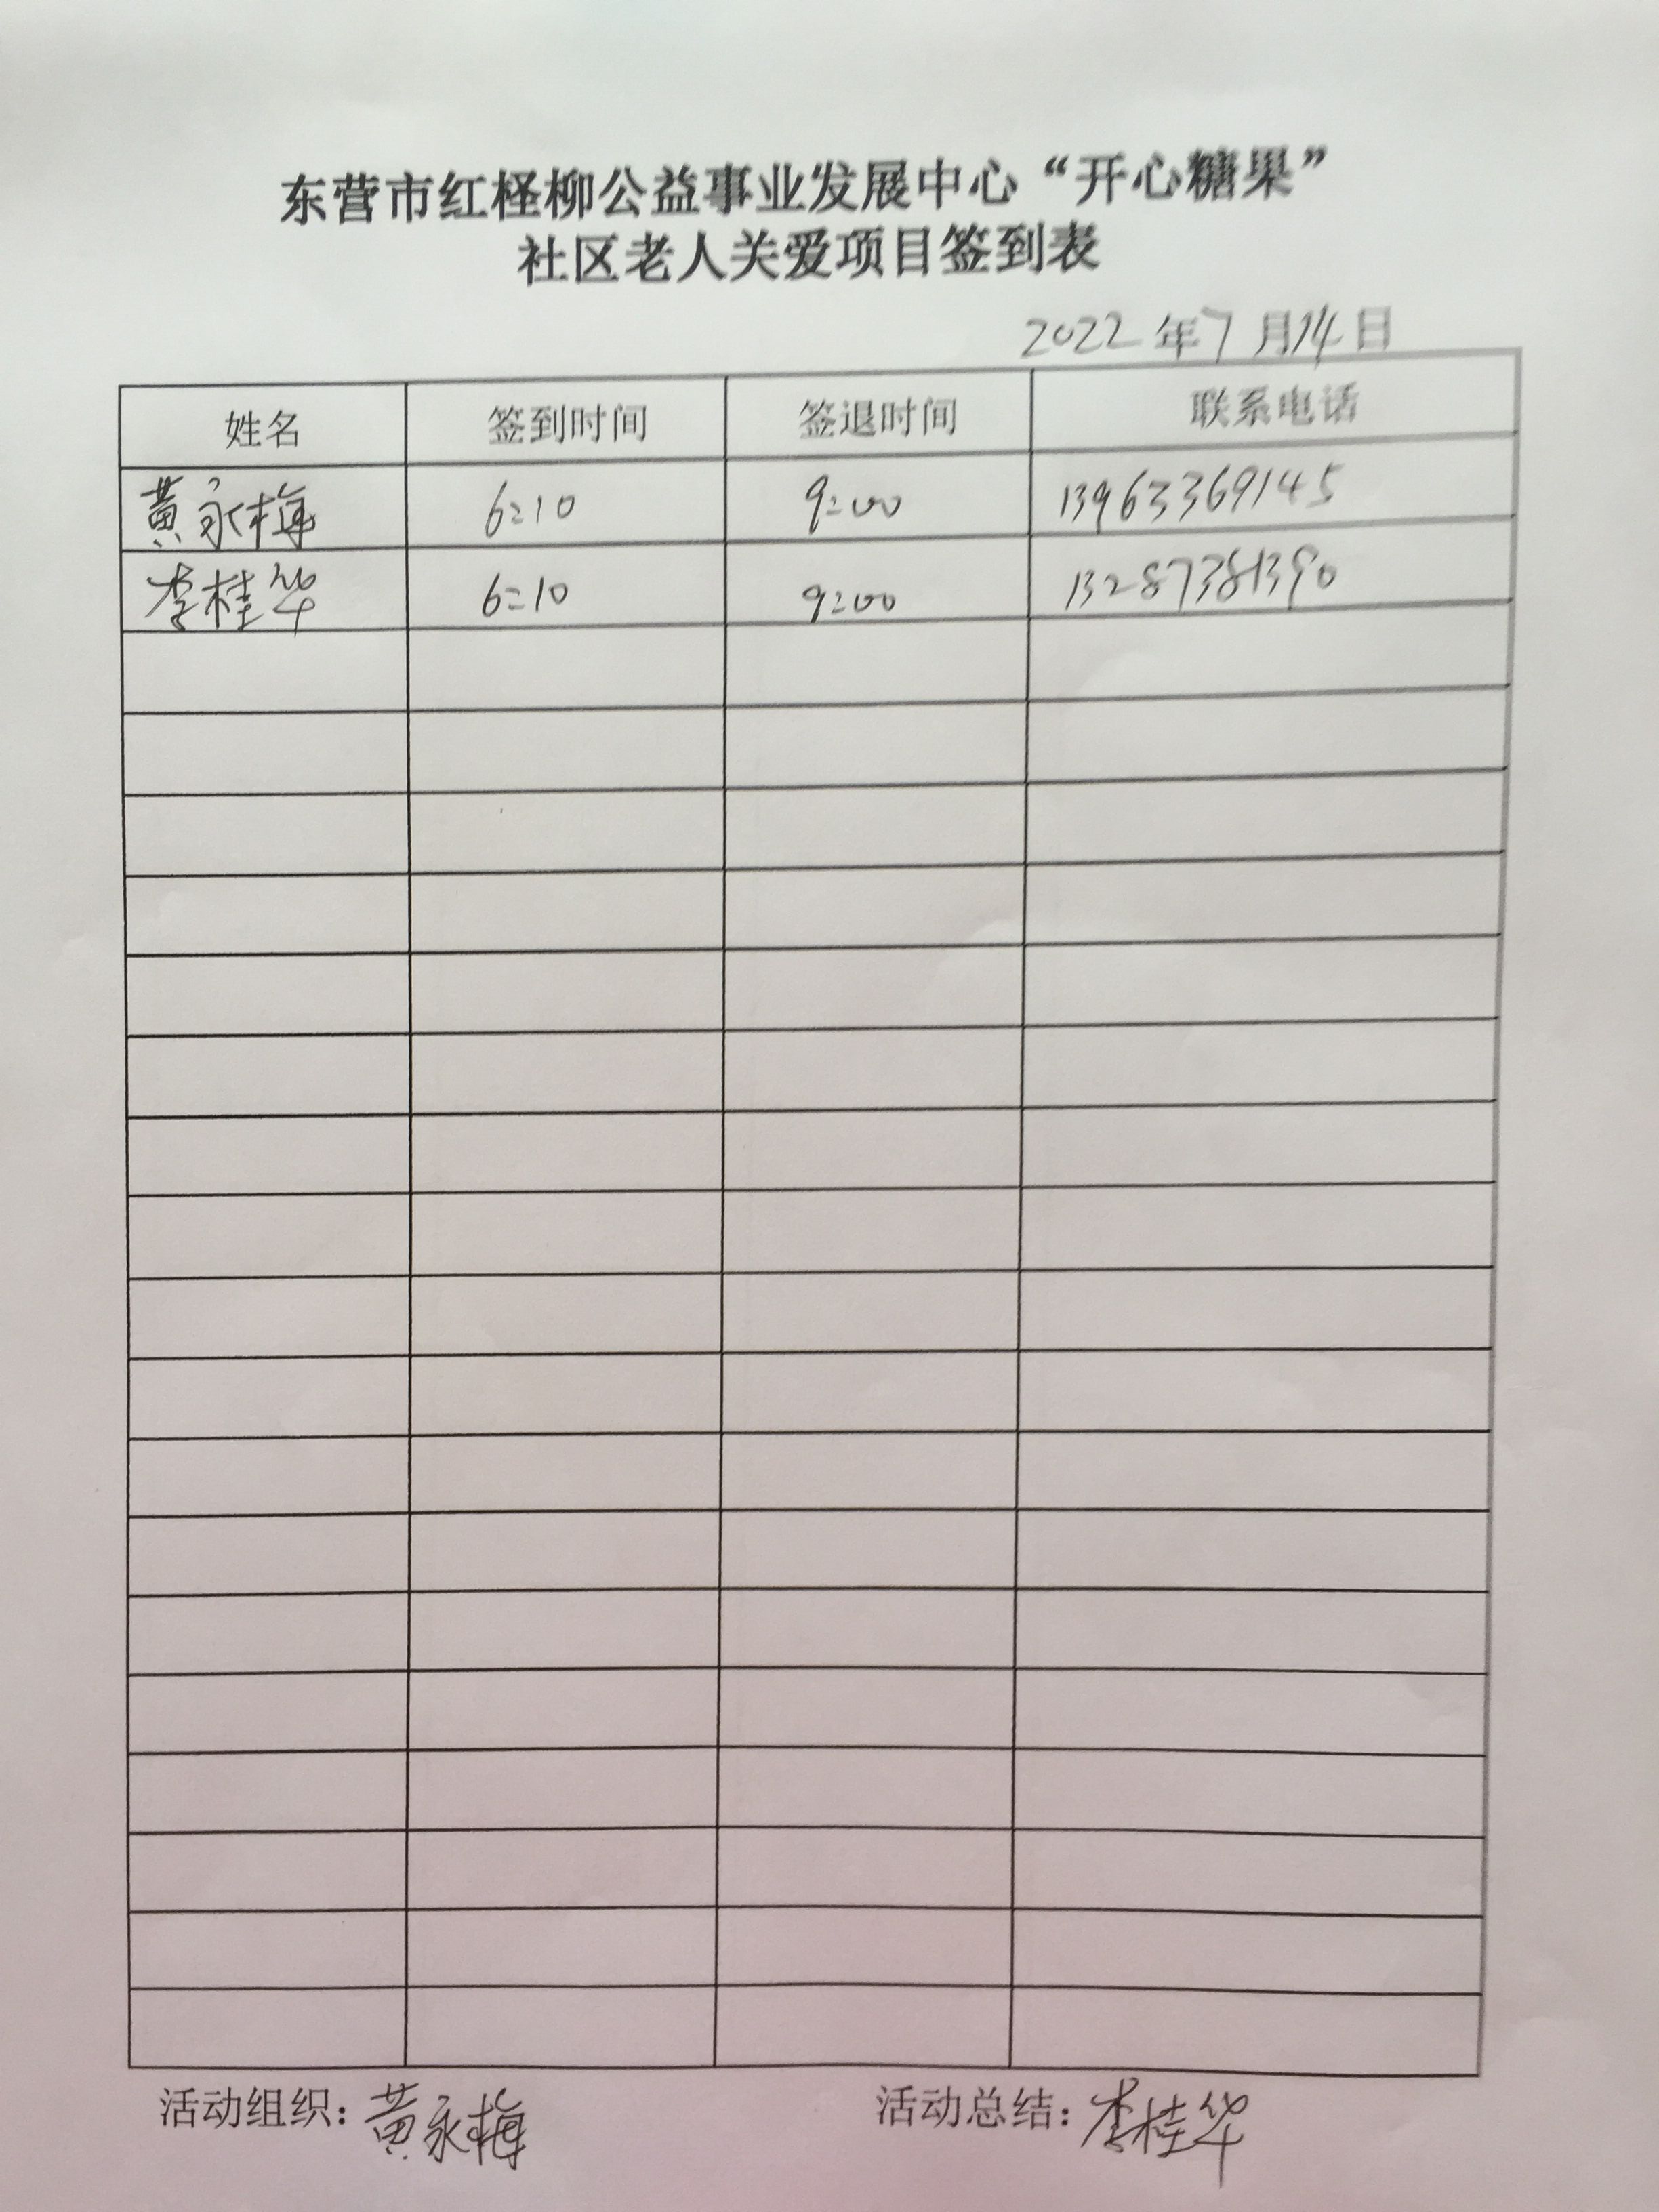 东营市红柽柳公益事业发展中心“开心糖果”
社区老人关爱项目签到表
2022年7月14日
姓名 签到时间 签退时间 联系电话
黄永梅 6:10 9:00 13963369145
李桂华 6:10 9:00 13287381390
活动组织：黄永梅 活动总结：李桂华